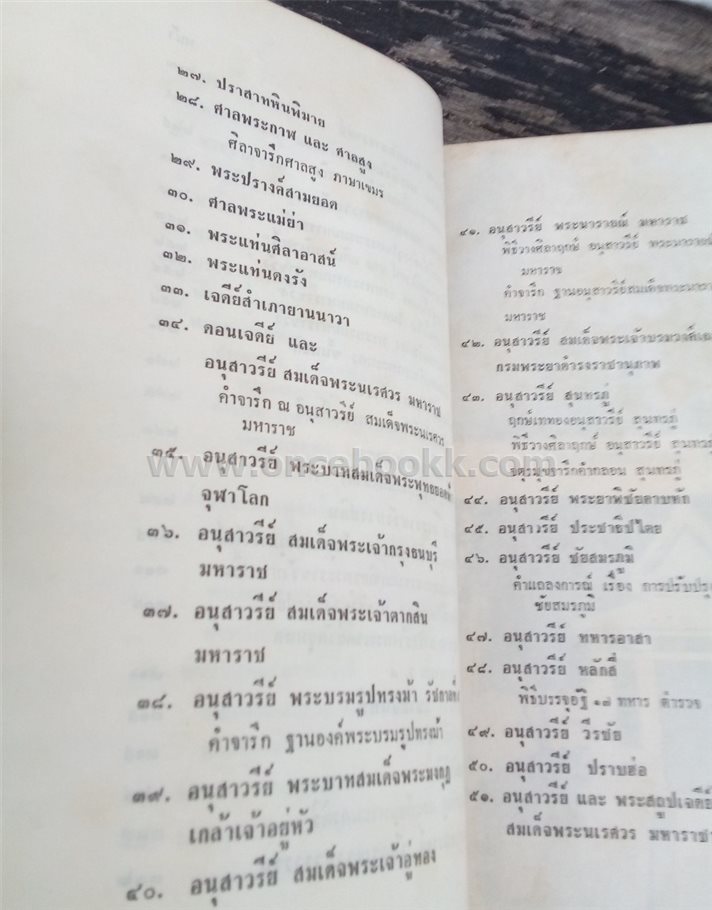 ๒๗. ปราสาทหินพิมาย
๒๘. ศาลพระกาฬ และ ศาลสูง
ศิลาจารึกศาลสูง ภาษาเขมร
๒๙. พระปรางค์สามยอด
๓๐. ศาลพระแม่ย่า
๓๑. พระแท่นศิลาอาสน์
๓๒. พระแท่นดงรัง
๓๓. เจดีย์สำเภายานนาวา
๓๔. ดอนเจดีย์ และ
อนุสาวรีย์ สมเด็จพระนเรศวร มหาราช
คำจารึก ณ อนุสาวรีย์ สมเด็จพระนเรศวร
มหาราช
๓๕. อนุสาวรีย์ พระบาทสมเด็จพระพุทธยอดฟ้า
จุฬาโลก
๓๖. อนุสาวรีย์ สมเด็จพระเจ้ากรุงธนบุรี
มหาราช
๓๗. อนุสาวรีย์ สมเด็จพระเจ้าตากสิน
มหาราช
๓๘. อนุสาวรีย์ พระบรมรูปทรงม้า รัชกาลที่
คำจารึก ฐานองค์พระบรมรูปทรงม้า
๓๙. อนุสาวรีย์ พระบาทสมเด็จพระมงกุฎ
เกล้าเจ้าอยู่หัว
๔๐. อนุสาวรีย์ สมเด็จพระเจ้าอู่ทอง
๔๑. อนุสาวรีย์ พระนารายณ์ มหาราช
พิธีวางศิลาฤกษ์ อนุสาวรีย์ พระนารายณ์
มหาราช
คำจารึก ฐานอนุสาวรีย์สมเด็จพระนารา
มหาราช
๔๒. อนุสาวรีย์ สมเด็จพระเจ้าบรมวงศ์เธอ
กรมพระยาดำรงราชานุภาพ
๔๓. อนุสาวรีย์ สุนทรภู่
ฤกษ์เททองอนุสาวรีย์ สุนทรภู่
พิธีวางศิลาฤกษ์ อนุสาวรีย์ สุนทรภู่
จตุรมุขจารึกคำกลอน สุนทรภู่
๔๔. อนุสาวรีย์ พระยาพิชัยดาบหัก
๔๕. อนุสาวรีย์ ประชาธิปไตย
๔๖. อนุสาวรีย์ ชัยสมรภูมิ
คำแถลงการณ์ เรื่อง การปรับปรุง
ชัยสมรภูมิ
๔๗. อนุสาวรีย์ ทหารอาสา
๔๘. อนุสาวรีย์ หลักสี่
พิธีบรรจุอัฐิ ๑๗ ทหาร ตำรวจ
๔๙. อนุสาวรีย์ วีรชัย
๕๐. อนุสาวรีย์ ปราบฮ่อ
๕๑. อนุสาวรีย์ และ พระสถูปเจดีย์
สมเด็จพระนเรศวร มหาราช
www.oncebookk.com